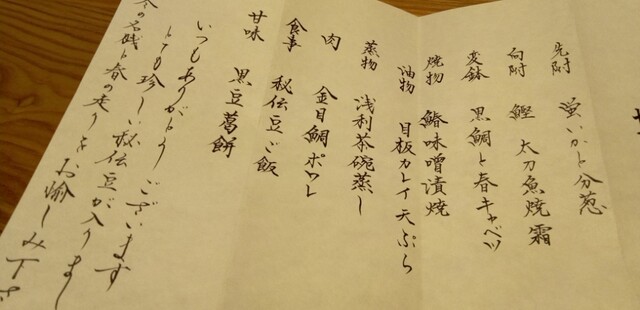 先附 蛍いかと分葱
向附 鰹 太刀魚焼霜
変鉢 黒鯛と春キャベツ
焼物 鰆味噌漬焼
油物 目板カレイ天ぷら
蒸物 浅利茶碗蒸し
肉 金目鯛ポワレ
食事 秘伝豆ご飯
甘味 黒豆葛餅
いつもありがとうございます
とても珍しい秘伝豆が入りまし
冬の名残と春の走りをお愉しみ下さ